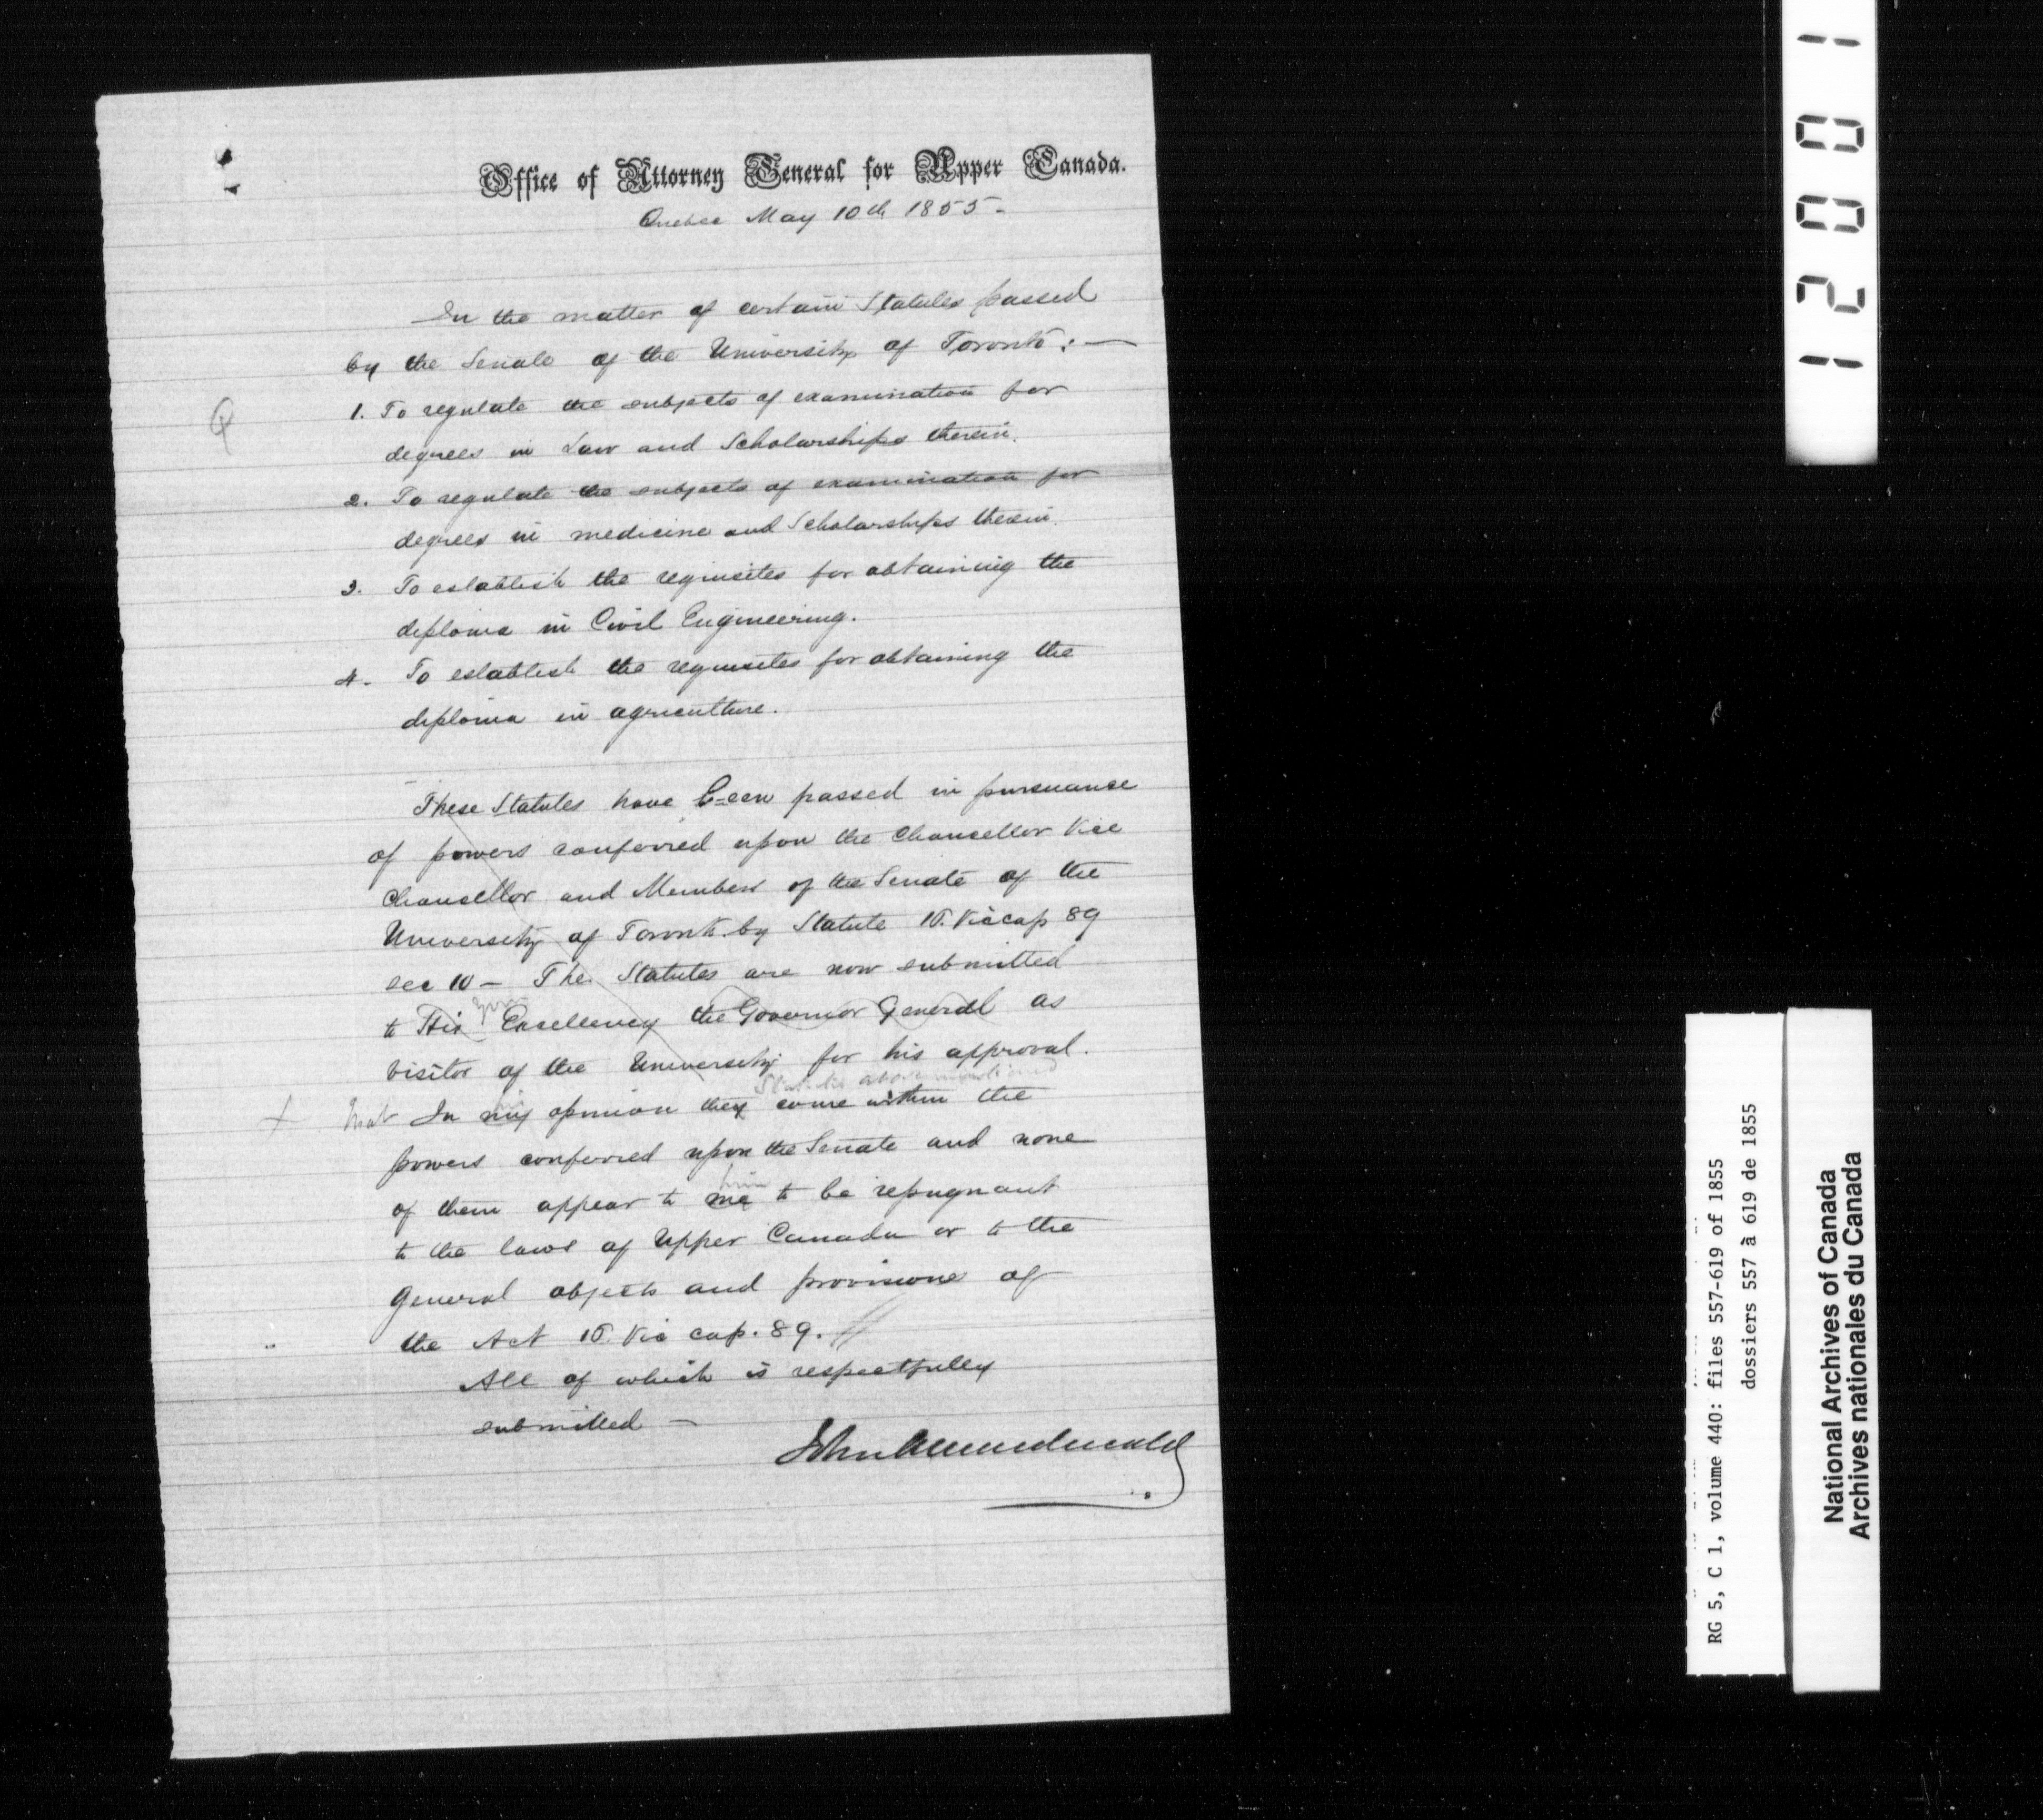 Office of Attorney General for Upper Canada.
Quebec May 10th 1855-
In the matter of certain Statutes passed
by the Senate of the University of Toronto:—
1. To regulate the subjects of examination for
degrees in Law and Scholarships therein.
2. To regulate the subjects of examination for
degrees in medicine and Scholarships therein.
3. To establish the requisites for obtaining the
diploma in Civil Engineering.
4. To establish the requisites for obtaining the
diploma in agriculture.
These Statutes have been passed in pursuance
of powers conferred upon the Chancellor Vice
Chancellor and Members of the Senate of the
University of Toronto by Statute 16. Vic cap 89
sec 10 — The Statutes are now submitted
your
to His Excellency the Governor General as
visitor of the University for his approval.
Statutes above mentioned
that In my opinion they come within the
powers conferred upon the Senate and none
him
of them appear to me to be repugnant
to the laws of Upper Canada or to the
general objects and provisions of
the Act 16. Vic cap. 89.
All of which is respectfully
submitted —
John A Macdonald
12001
RG 5, C 1, volume 440: files 557-619 of 1855
dossiers 557 à 619 de 1855
National Archives of Canada
Archives nationales du Canada